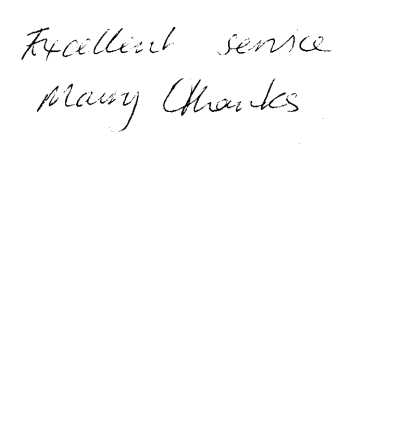 Excellent service
Many thanks